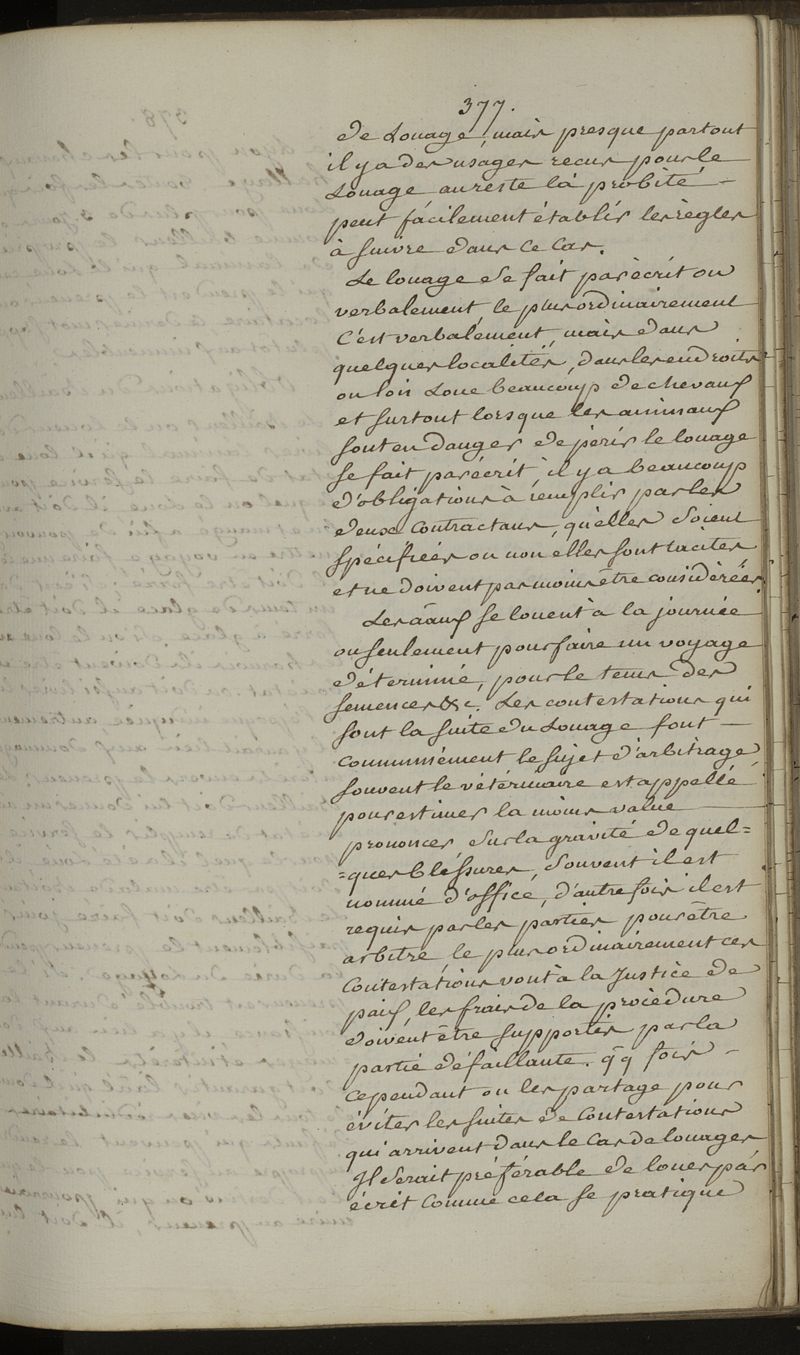 377.
de Louage, mais presque partout
il y a des usages recus pour le
Louage au reste la probité –
peut fácilement établir les règles
à suivre dans ce cas.
Le louage se fait par écrit ou
verbalement, le plus ordinairement
C'est verbalement, mais dans
quelques localités, dans les endroits
ou lon Loue beaucoup de chevaux
et surtout lorsque les animaux
sont en danger de périr le louage
se fait par écrit, il y a beaucoup
d'obligations à remplir par les
deux Contractans, qu'elles soient
spécifiées ou non elles sont tacites
et ne doivent pas moins être considèrées.
Les aâux se louent à la journée
ou seulement pour faire un voyage
déterminé, pour le tems des
semences &c. Les contestations qui
sont la suite du Louage font –
Communément le sujet d'arbitrage,
souvent le vétérinaire est appellé
pour estimer la moins value
prononcer sur la gravité de quel=
=ques bléssures, souvent il est
nommé d'office, d'autre fois il est
requis par les parties pour être
arbitre, le plus ordinairement ces
Contestations vont à la Justice de
paix, les frais de la procèdure
doivent être supportés par la
partie défaillante. qq fois –
cependant on les partage pour
éviter les suites de Contestations
qui arrivent dans le Cas de louages
Il serait préférable de louer par
écrit Comme cela se pratique